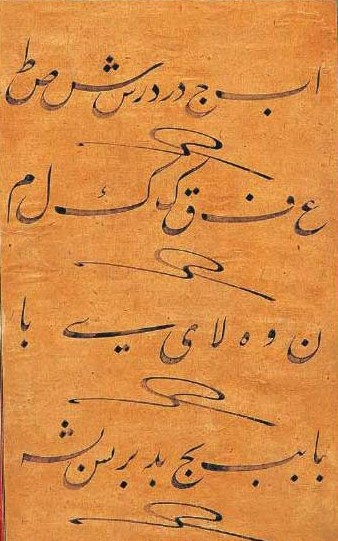 ا ب ج د ر د رس ش ص ط
ع ف ق ک ک ل م
ن و ه لا ی ے با
با بب بج بد بر بس بش